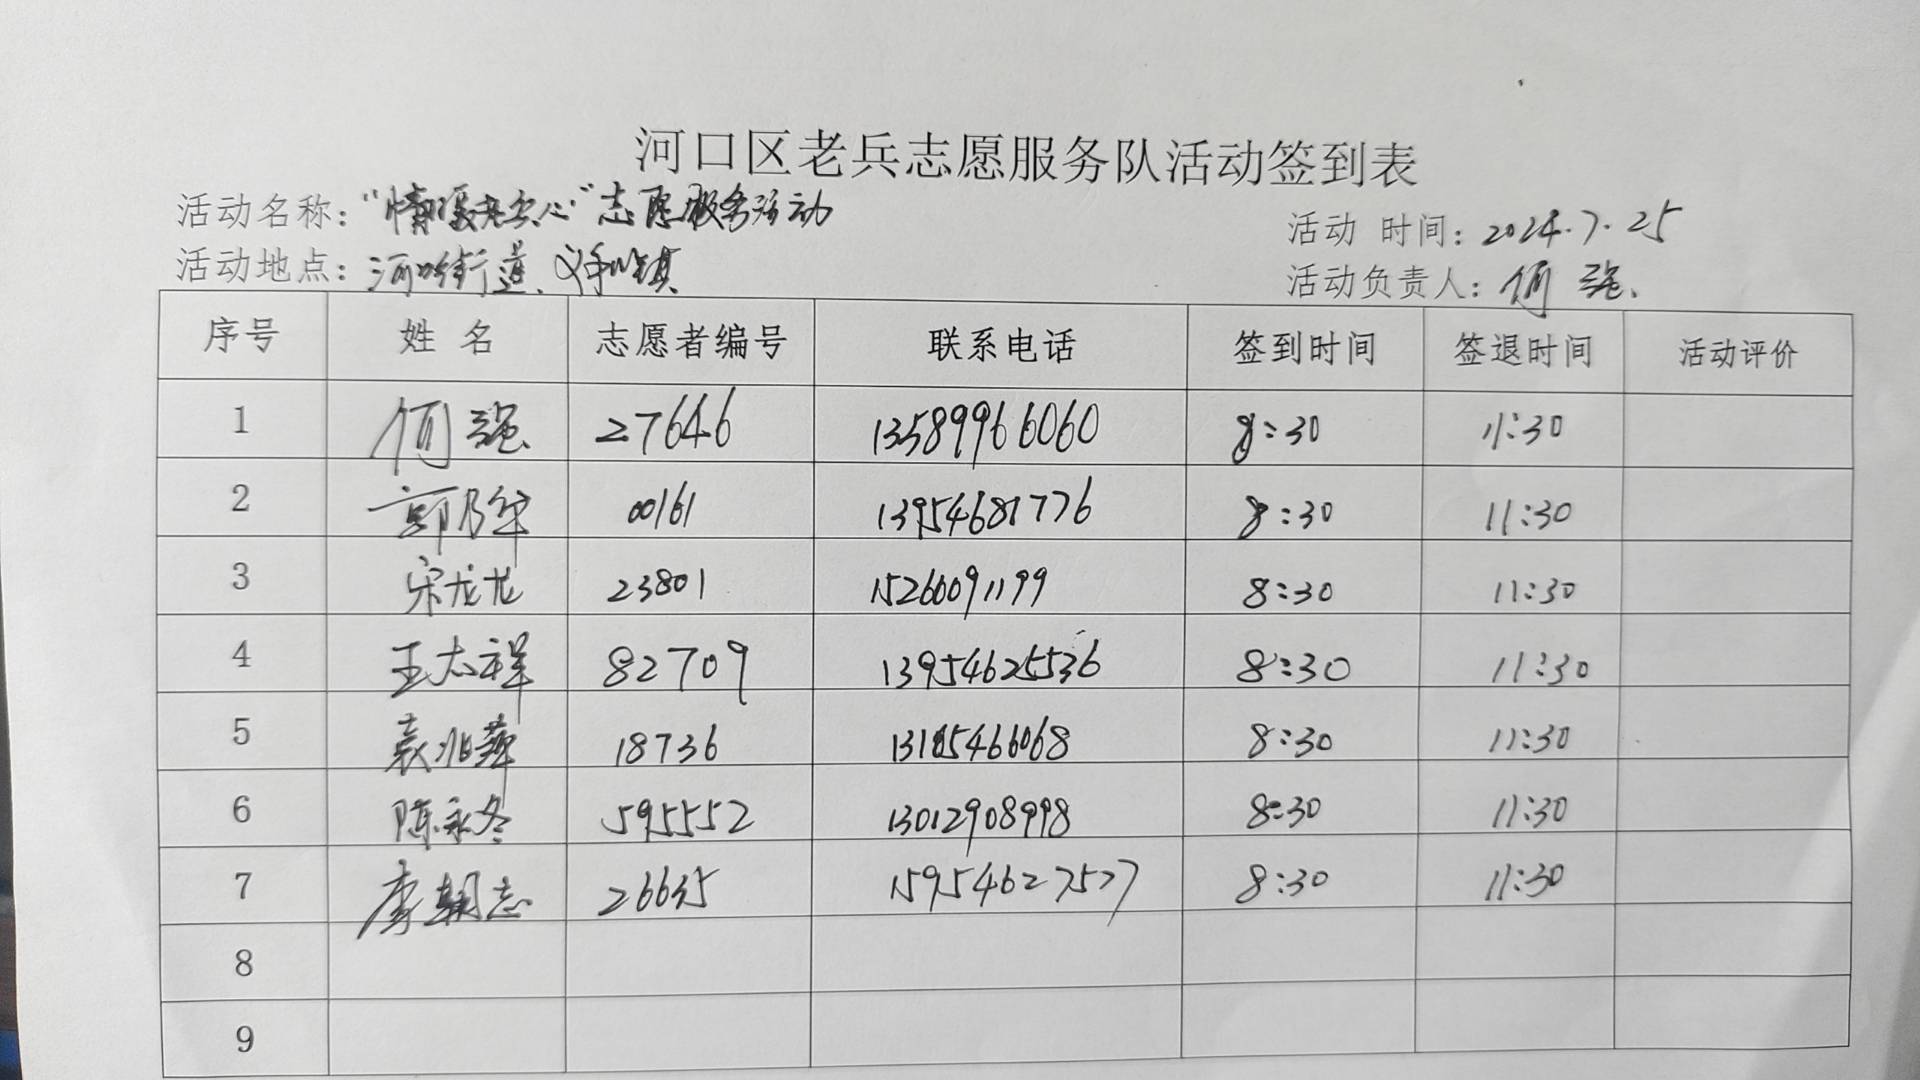 河口区老兵志愿服务队活动签到表
活动名称："情暖老兵心"志愿服务活动
活动时间：2024.7.25
活动地点：河口街道、义和镇
活动负责人：何强
序号 姓名 志愿者编号 联系电话 签到时间 签退时间 活动评价
1 何强 27646 13589966060 8:30 11:30
2 郭乃军 00161 13954681776 8:30 11:30
3 宋龙龙 23801 15266091199 8:30 11:30
4 王志祥 82709 13954625536 8:30 11:30
5 袁兆萍 18736 8:30 11:30
6 陈永冬 595552 13012908998 8:30 11:30
7 李朝志 26635 15954627527 8:30 11:30
8
9